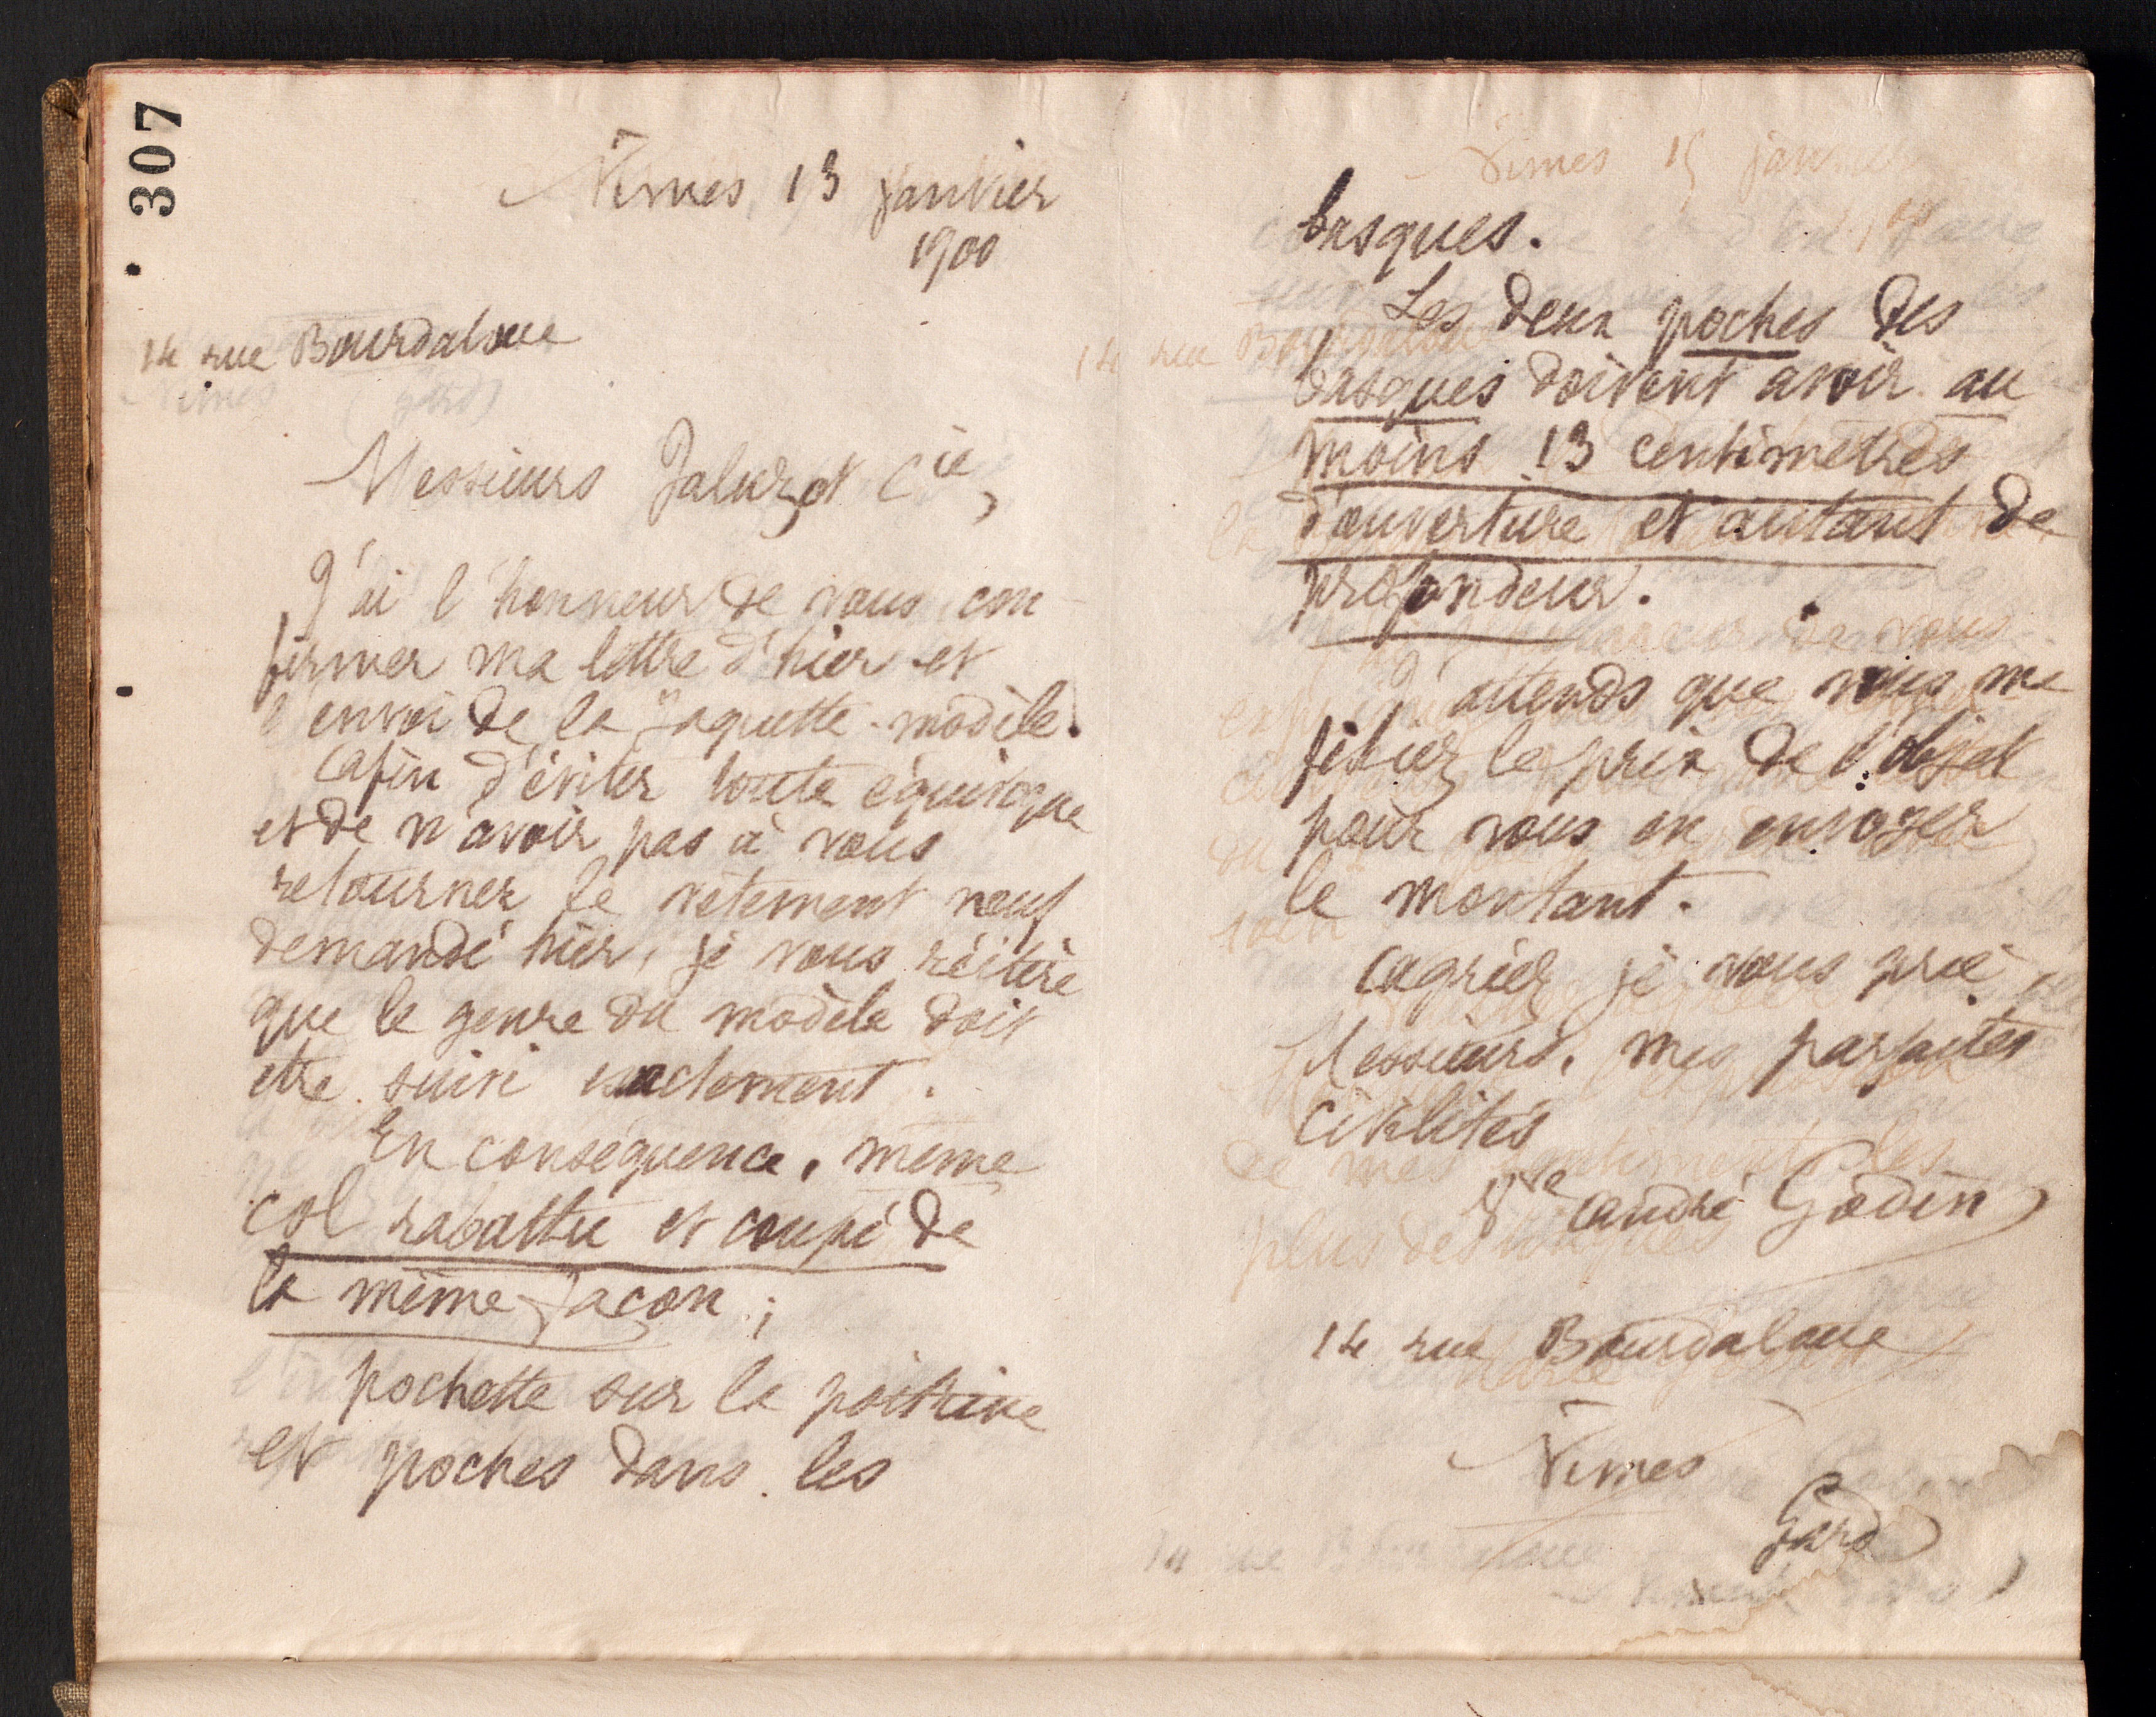 307
Nîmes, 13 janvier
1900
14 rue Bourdaloue
Nîmes (Gard)
Messieurs Jaluzot Cie,
J'ai l'honneur de vous con-
firmer ma lettre d'hier et
l'envoi de la jaquette-modèle.
Afin d'éviter toute équivoque
et de n'avoir pas à vous
retourner le vêtement neuf
demandé hier, je vous réitère
que le genre du modèle doit
être suivi exactement.
En conséquence, même
col rabattu et coupé de
la même façon;
pochette sur la poitrine
et poches dans les
basques.
Les deux poches des
basques doivent avoir au
moins 13 centimètres
d'ouverture et autant de
profondeur.
J'attends que vous me
fixiez le prix de l'objet
pour vous en envoyer
le montant.
Agréez je vous prie,
Messieurs, mes parfaites
civilités
Vve André Godin
14 rue Bourdaloue
Nîmes
Gard